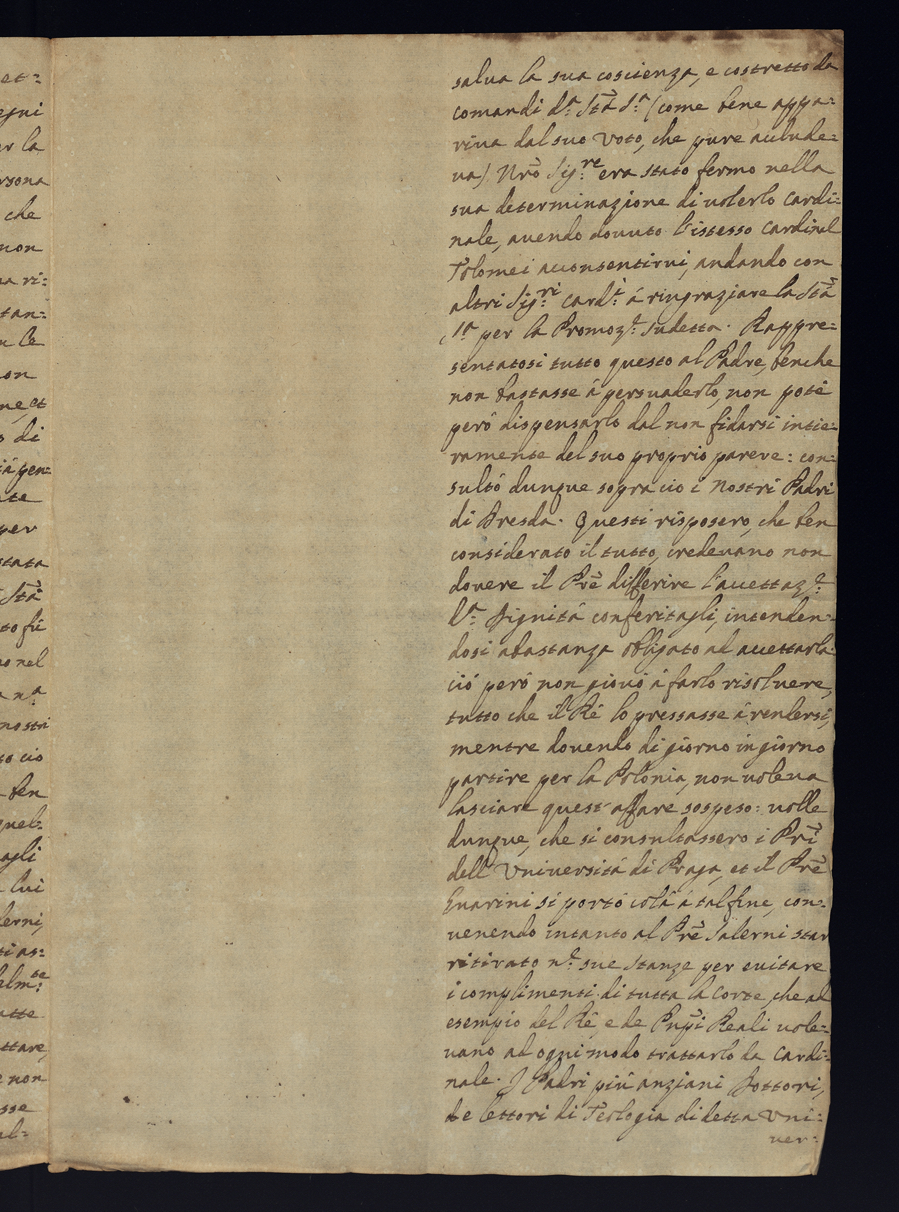 et=
equi
er la
rsona
che
non
na ri=
tan=
n le
on
ne, et
o di
ià gen=
ate
per
stata
Stã
to fù
no nel
a nª
nostri
to ciò
ben
quel=
agli
lui
lerni,
ti as=
alm:te
atte
ttare,
e non
sse
al=
salua la sua coscienza, e costretto da
comandi d.ª Stã S.ª (come bene appa=
riua dal suo Voto, che pure acclude=
ua). Nrõ Sig.re era stato fermo nella
sua determinazione di uolerlo Cardi=
nale, auendo douuto l'istesso Cardinal
Tolomei acconsentirui, andando con
altri Sig.ri Card.i à ringraziare la Stã
S.ª per la Promoz.e sudetta. Rappre=
sentatosi tutto questo al Padre, benche
non bastasse à persuaderlo, non potè
però dispensarlo dal non fidarsi intie=
ramente del suo proprio parere: con=
sultò dunque sopra ciò i nostri Padri
di Dresda. Questi risposero, che ben
considerato il tutto, credeuano non
douere il Prẽ differire l'accettaz.e
d.ª Dignità conferitagli, intenden=
dosi abastanza obligato ad accettarla.
ciò però non giouò à farlo risoluere,
tutto che il Rè lo pressasse à rendersi,
mentre douendo di giorno in giorno
partire per la Polonia, non uoleua
lasciare quest'affare sospeso: uolle
dunque, che si consultassero i Prĩ
dell'Vniuersità di Praga, et il Prẽ
Guarini si portò colà à tal fine, con=
uenendo intanto al Prẽ Salerni star
ritirato n.e sue stanze per euitare
i complimenti di tutta la Corte, che ad
esempio del Rè, e de Pnp̃i Reali uole=
uano ad ogni modo trattarlo da Cardi=
nale. I Padri più anziani Dottori,
e lettori di Teologia di detta Vni=
uer=